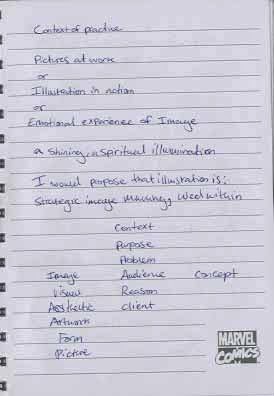 Context of practice
Pictures at work
or
Illustration in action
or
Emotional experience of Image
a shining, a spiritual illumination
I would propose that illustration is;
Strategic image making, used within
Context
Purpose
Problem
Image Audience Concept
Visual Reason
Aesthetic client
Artwork
Form
Picture
MARVEL
COMICS